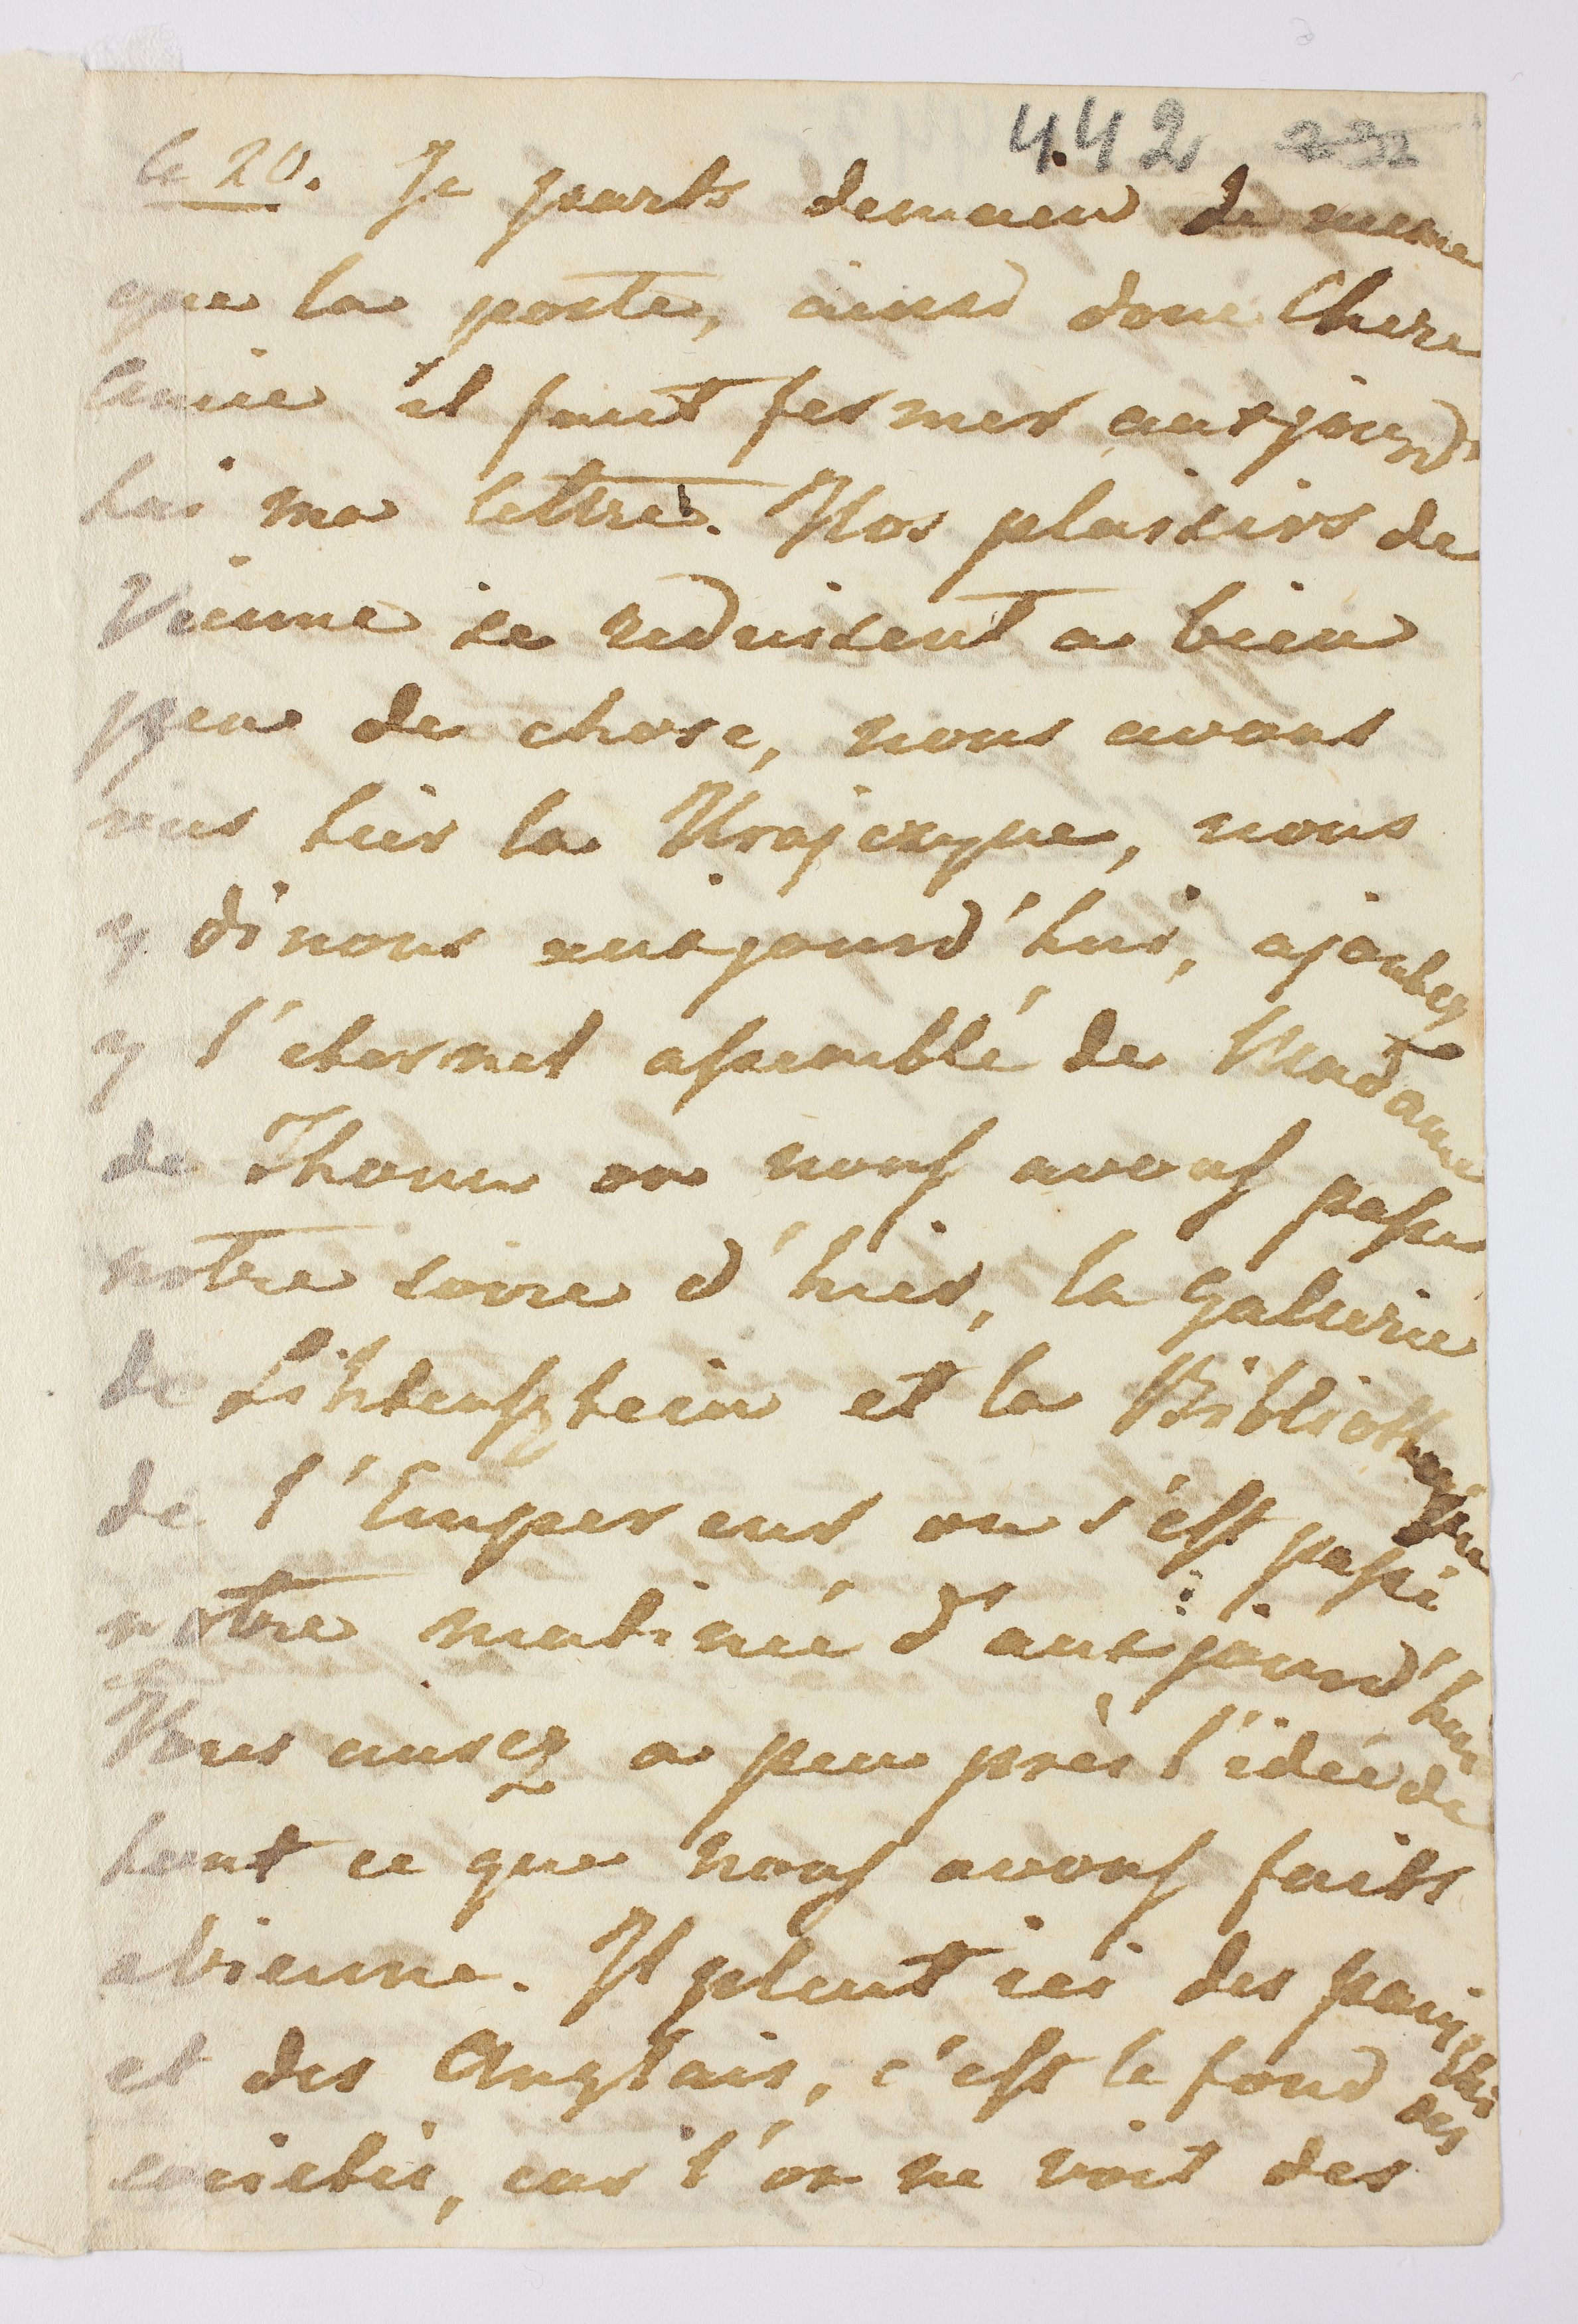 442 232
le 20. Je parts demain de meme
que la poste, ainsi donc Chere
Amie il faut fermer autjourd
hui ma lettre. Nos plaisirs de
Vienne se reduisent a bien
peu de chose, nous avons
vus hier la Krajczyne, nous
y dinons autjourd'hui, ajoutez
y l'eternel assemblé de Madame
de Thoun ou nous avons passe
notre soire d'hier, la Galierie
de Lihtensztein et la Bibliotheque
de l'Empereur ou s'est passé
notre matineé d'autjourd'hui
Vous aurez a peu près l'ideé de
tout ce que nous avons faits
a Vienne. Il pleut ici des
et des Anglais, c'est le fond des
societés, car l'on ne voit des